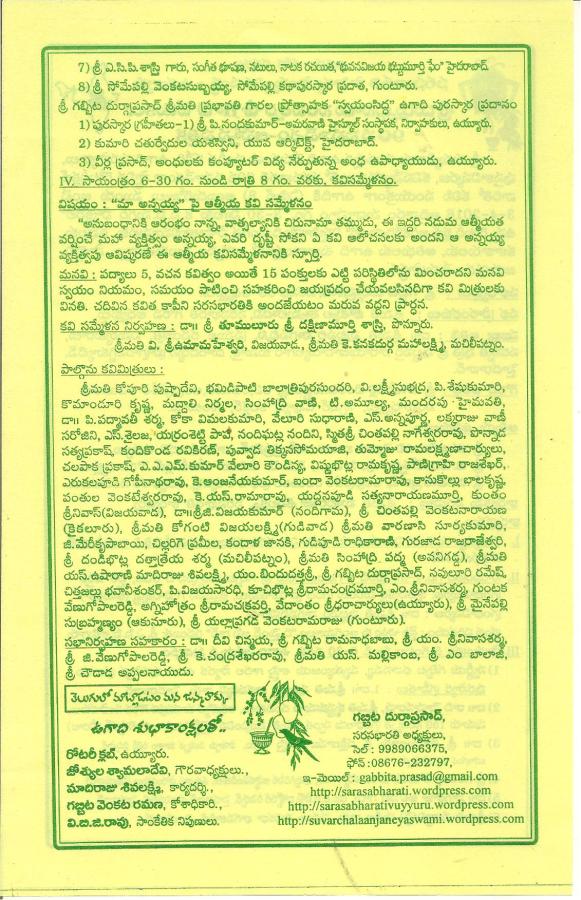 7) శ్రీ ఎ.సి.పి. శాస్త్రి గారు, సంగీత భూషణ, నటులు, నాటక రచయిత, "భువనవిజయ భట్టుమూర్తి ఫేం" హైదరాబాద్.
8) శ్రీ సోమేపల్లి వెంకటసుబ్బయ్య, సోమేపల్లి కథాపురస్కార ప్రదాత, గుంటూరు.
శ్రీ గబ్బిట దుర్గాప్రసాద్ శ్రీమతి ప్రభావతి గారల ప్రోత్సాహక "స్వయంసిద్ధ" ఉగాది పురస్కార ప్రదానం
1) పురస్కార గ్రహీతలు-1) శ్రీ పి.నందకుమార్-అమరవాణి హైస్కూల్ సంస్థాపక, నిర్వాహకులు, ఉయ్యూరు.
2) కుమారి చతుర్వేదుల యశస్విని, యువ ఆర్కిటెక్ట్, హైదరాబాద్.
3) వీర్ల ప్రసాద్, అంధులకు కంప్యూటర్ విద్య నేర్పుతున్న అంధ ఉపాధ్యాయుడు, ఉయ్యూరు.
IV. సాయంత్రం 6-30 గం. నుండి రాత్రి 8 గం. వరకు. కవిసమ్మేళనం.
విషయం : "మా అన్నయ్య" పై ఆత్మీయ కవి సమ్మేళనం
"అనుబంధానికి ఆరంభం నాన్న, వాత్సల్యానికి చిరునామా తమ్ముడు, ఈ ఇద్దరి నడుమ ఆత్మీయత
వర్షించే మహా వ్యక్తిత్వం అన్నయ్య, ఎవరి దృష్టీ సోకని ఏ కవి ఆలోచనలకు అందని ఆ అన్నయ్య
వ్యక్తిత్వపు ఆవిష్కరణే ఈ ఆత్మీయ కవిసమ్మేళనానికి స్ఫూర్తి.
మనవి : పద్యాలు 5, వచన కవిత్వం అయితే 15 పంక్తులకు ఎట్టి పరిస్థితిలోను మించరాదని మనవి
స్వయం నియమం, సమయం పాటించి సహకరించి జయప్రదం చేయవలసినదిగా కవి మిత్రులకు
వినతి. చదివిన కవిత కాపీని సరసభారతికి అందజేయటం మరువ వద్దని ప్రార్ధన.
కవి సమ్మేళన నిర్వహణ : డా॥ శ్రీ తూములూరు శ్రీ దక్షిణామూర్తి శాస్త్రి, పొన్నూరు.
శ్రీమతి వి. శ్రీఉమామహేశ్వరి, విజయవాడ., శ్రీమతి కె.కనకదుర్గ మహాలక్ష్మి, మచిలీపట్నం.
పాల్గొను కవిమిత్రులు :
శ్రీమతి కోపూరి పుష్పాదేవి, భమిడిపాటి బాలాత్రిపురసుందరి, వి.లక్ష్మీసుభద్ర, పి.శేషుకుమారి,
కొమాండూరి కృష్ణ, మద్దాలి నిర్మల, సింహాద్రి వాణి, టి.అమూల్య, మందరపు హైమవతి,
డా॥ పి.పద్మావతి శర్మ, కోకా విమలకుమారి, వేలూరి సుధారాణి, ఎస్.అన్నపూర్ణ, లక్కరాజు వాణీ
సరోజిని, ఎస్.శైలజ, యర్రంశెట్టి పాపే, నందిఘట్ల నందిని, స్మితశ్రీ చింతపల్లి నాగేశ్వరరావు, పొన్నాడ
సత్యప్రకాష్, కందికొండ రవికిరణ్, పువ్వాడ తిక్కనసోమయాజి, తుమ్మోజు రామలక్ష్మణాచార్యులు,
చలపాక ప్రకాష్, ఎ.ఎ.ఎమ్.కుమార్ వేలూరి కౌండిన్య, విష్ణుభొట్ల రామకృష్ణ, పాణిగ్రాహి రాజశేఖర్,
ఎరుకలపూడి గోపీనాథరావు, కె.ఆంజనేయకుమార్, ఐందా వెంకటరామారావు, కానుకొల్లు బాలకృష్ణ,
పంతుల వెంకటేశ్వరరావు, కె.యస్.రామారావు, యద్దనపూడి సత్యనారాయణమూర్తి, కుంతం
శ్రీనివాస్(విజయవాడ), డా॥శ్రీ.జి.విజయకుమార్ (నందిగామ), శ్రీ చింతపల్లి వెంకటనారాయణ
(కైకలూరు), శ్రీమతి కోగంటి విజయలక్ష్మి(గుడివాడ) శ్రీమతి వారణాసి సూర్యకుమారి,
జి.మేరీకృపాబాయి, చిల్లరిగె ప్రమీల, కందాళ జానకి, గుడిపూడి రాధికారాణి, గురజాడ రాజరాజేశ్వరి,
శ్రీ దండిభొట్ల దత్తాత్రేయ శర్మ (మచిలీపట్నం), శ్రీమతి సింహాద్రి పద్మ (అవనిగడ్డ), శ్రీమతి
యస్.ఉషారాణి మాదిరాజు శివలక్ష్మి, యం.బిందుదత్తశ్రీ, శ్రీ గబ్బిట దుర్గాప్రసాద్, సఫులూరి రమేష్,
చిత్తజల్లు భవానీశంకర్, పి.విజయసారధి, కూచిభొట్ల శ్రీరామచంద్రమూర్తి, ఎం.శ్రీనివాసశర్మ, గుంటక
వేణుగోపాలరెడ్డి, అగ్నిహోత్రం శ్రీరామచక్రవర్తి, వేదాంతం శ్రీధరాచార్యులు(ఉయ్యూరు), శ్రీ మైనేపల్లి
సుబ్రహ్మణ్యం (ఆకునూరు), శ్రీ యల్లాప్రగడ వెంకటరామరాజు (గుంటూరు).
సభానిర్వహణ సహకారం : డా॥ దీవి చిన్మయ, శ్రీ గబ్బిట రామనాధబాబు, శ్రీ యం. శ్రీనివాసశర్మ,
శ్రీ జి.వేణుగోపాలరెడ్డి, శ్రీ కె.చంద్రశేఖరరావు, శ్రీమతి యస్. మల్లికాంబ, శ్రీ ఎం బాలాజీ,
శ్రీ చౌడాడ అప్పలనాయుడు.
తెలుగులో మాట్లాడటం మన జన్మహక్కు
ఉగాది శుభాకాంక్షలతో..
రోటరీ క్లబ్, ఉయ్యూరు.
జోశ్యుల శ్యామలాదేవి, గౌరవాధ్యక్షులు.,
మాదిరాజు శివలక్ష్మి, కార్యదర్శి.,
గబ్బిట వెంకట రమణ, కోశాధికారి.,
వి.బి.జి.రావు, సాంకేతిక నిపుణులు.
గబ్బిట దుర్గాప్రసాద్,
సరసభారతి అధ్యక్షులు,
సెల్ : 9989066375,
ఫోన్ :08676-232797,
ఇ-మెయిల్ : gabbita.prasad@gmail.com
http://sarasabharati.wordpress.com
http://sarasabharativuyyuru.wordpress.com
http://suvarchalaanjaneyaswami.wordpress.com